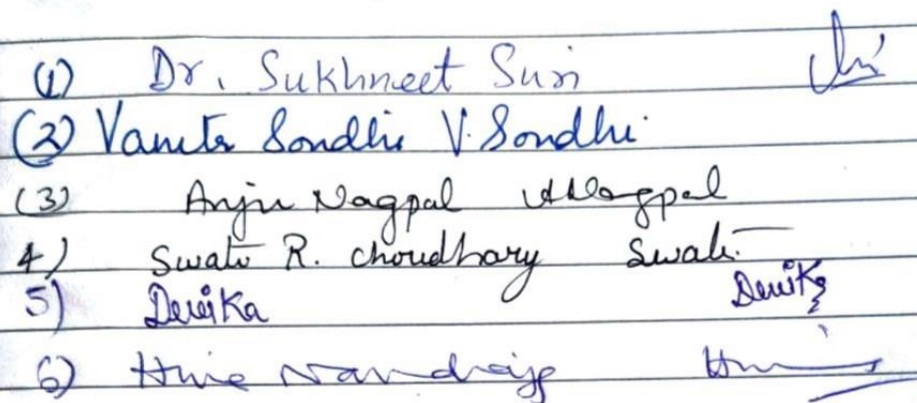 (1) Dr. Sukhneet Suri
(2) Vanita Sondhi V. Sondhi
(3) Anju Nagpal ANagpal
4) Swati R. Choudhary Swati
5) Devika Devika
6)